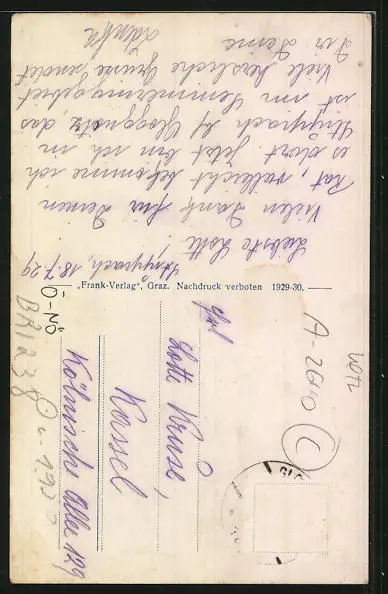 Stuppach, 18.7.29
Liebste Lotte!
Vielen Dank für Deinen
Rat, vielleicht bekomme ich
es dort. Jetzt bin ich in
Stuppach bf Gloggnitz, das
ist im Semmeringgebiet
Viele herzliche Grüsse sendet
Dir Deine
„Frank-Verlag", Graz. Nachdruck verboten 1929-30.
Frl
Lotte Kruse,
Kassel
Kölnische Allee 129
Ö-NÖ
A-2640
C